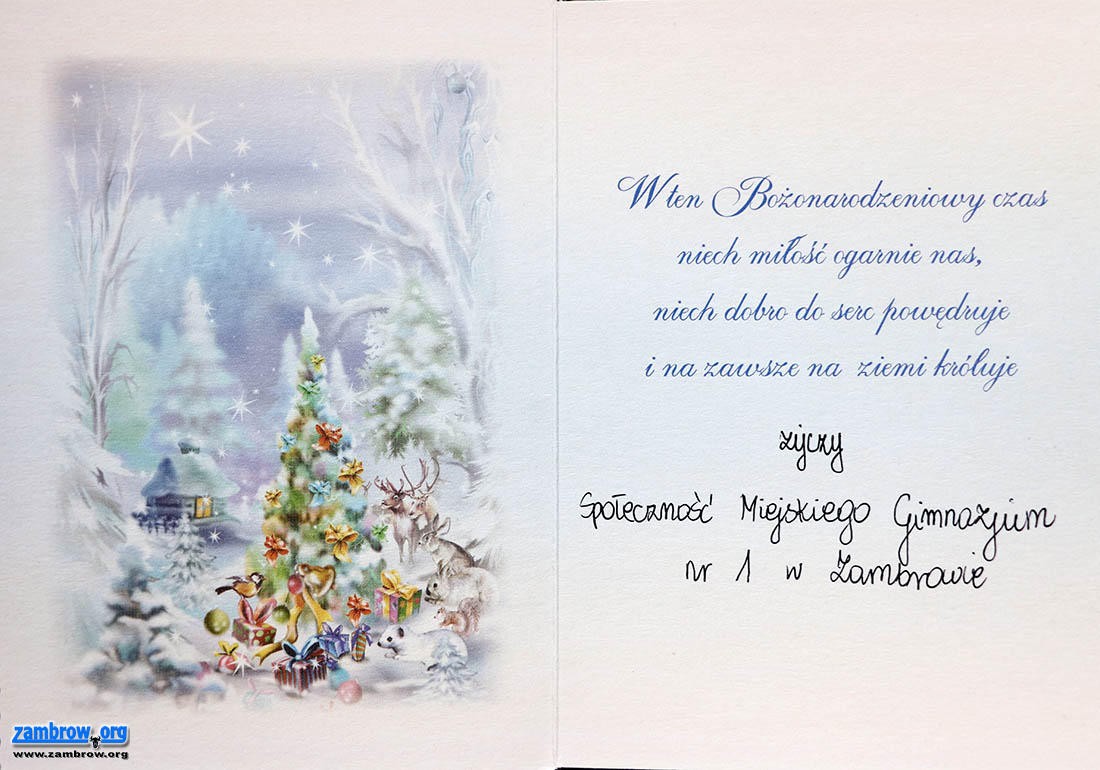 W ten Bożonarodzeniowy czas
niech miłość ogarnie nas,
niech dobro do serc powędruje
i na zawsze na ziemi króluje
życzy
Społeczność Miejskiego Gimnazjum
nr 1 w Zambrowie
zambrow.org
www.zambrow.org